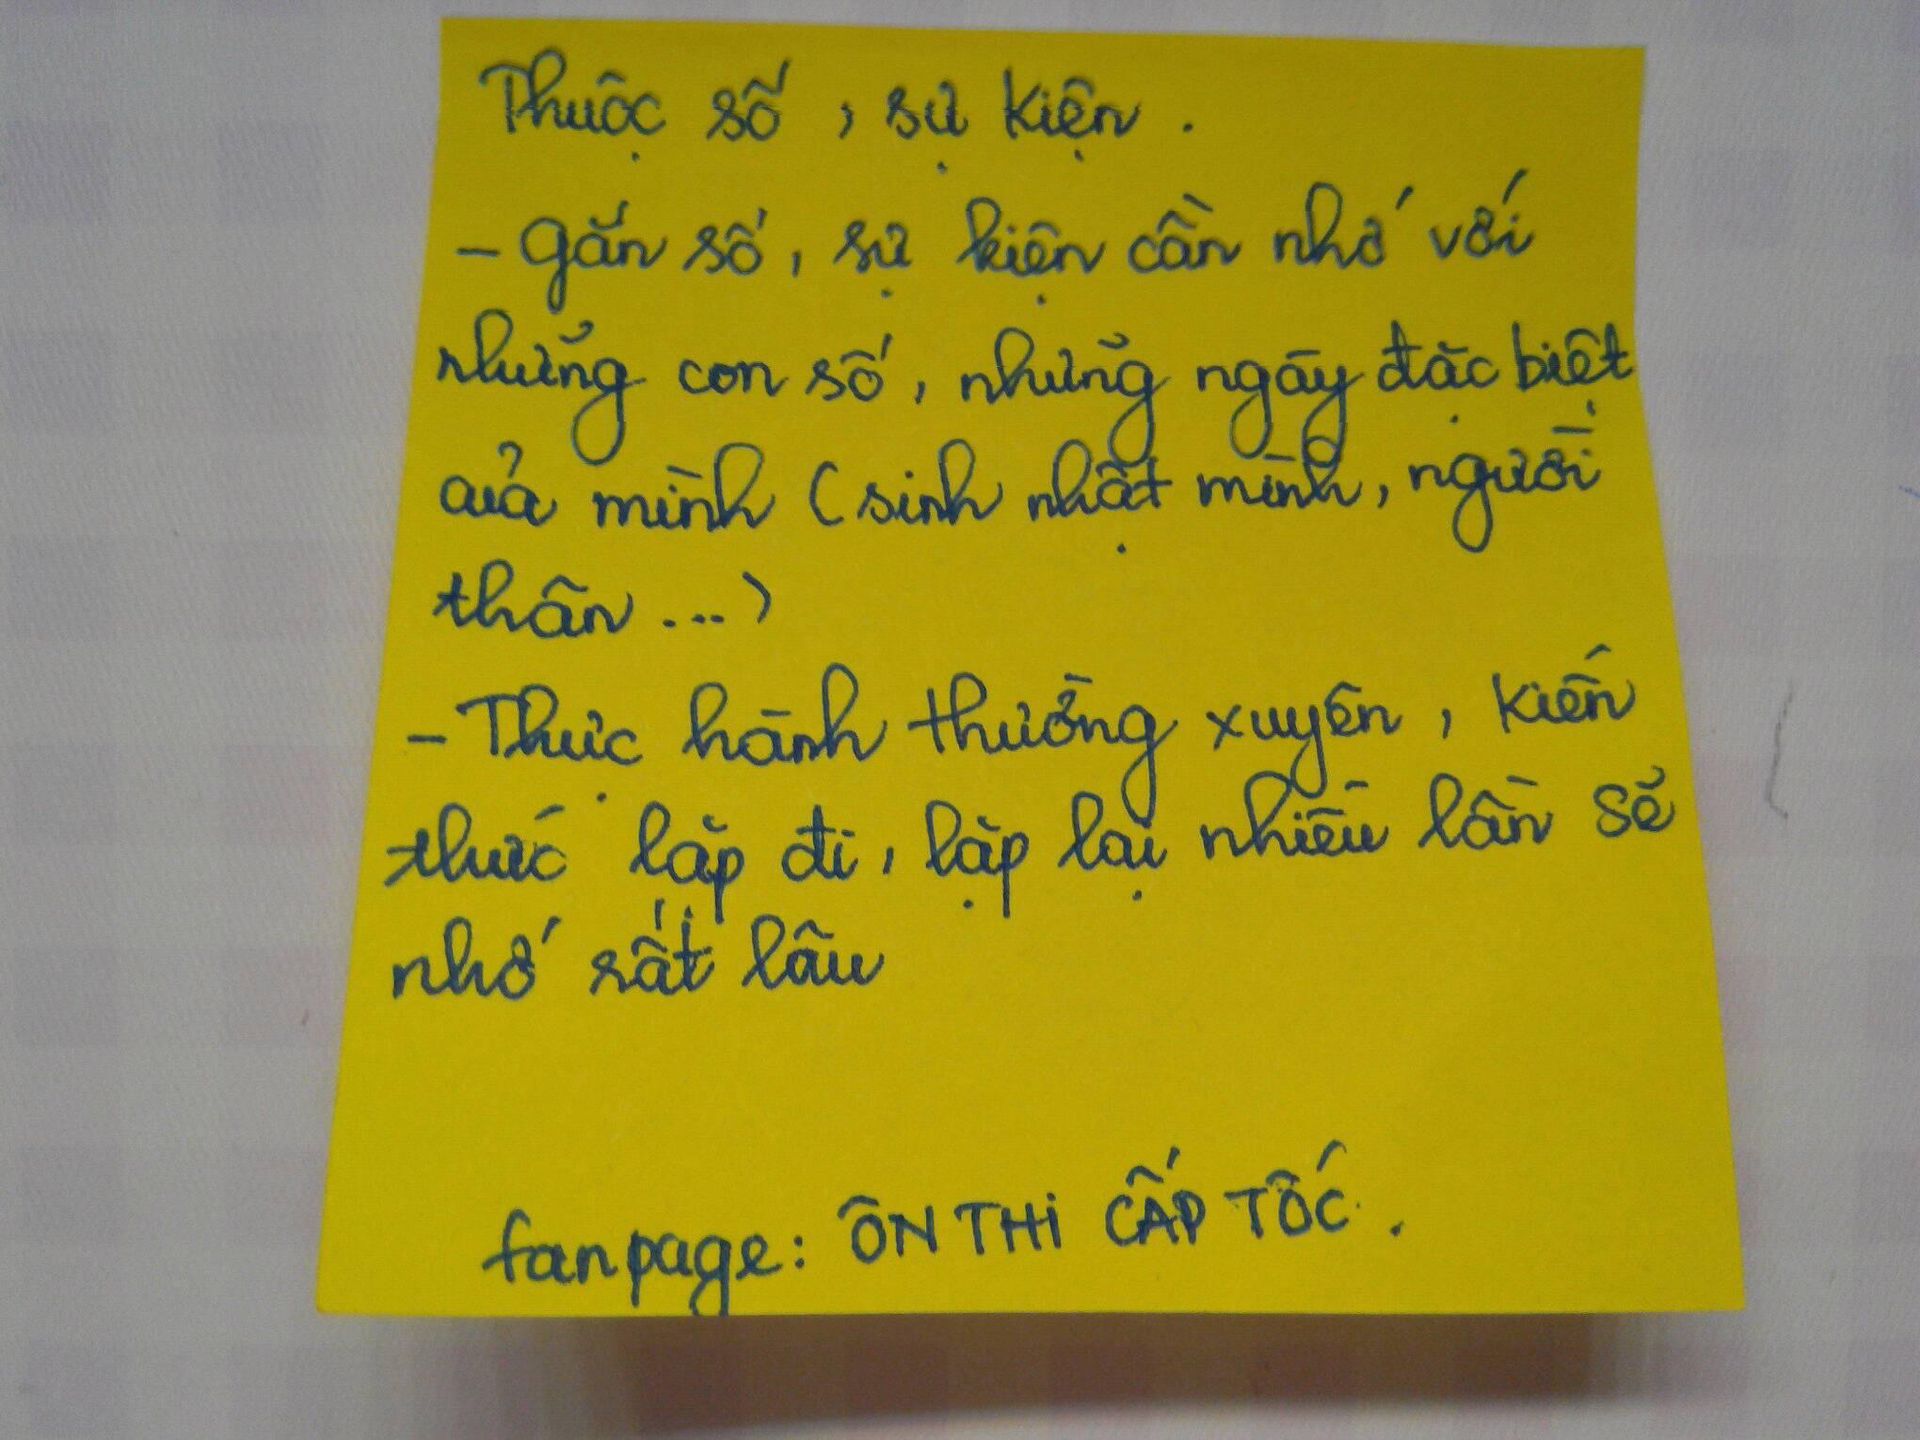 Thuộc số, sự kiện.
- Gắn số, sự kiện cần nhớ với
những con số, những ngày đặc biệt
của mình (sinh nhật mình, người
thân...)
- Thực hành thường xuyên, kiến
thức lặp đi, lặp lại nhiều lần sẽ
nhớ rất lâu
fanpage: ÔN THI CẤP TỐC.